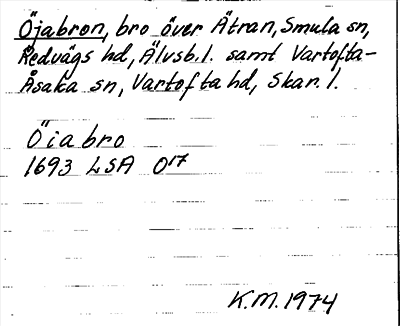 Öjabron, bro över Ätran, Smula sn,
Redvägs hd, Älvsb. l. samt Vartofta-
Åsaka sn, Vartofta hd, Skar. l.
Öia bro
1693 LSA O17
K.M. 1974